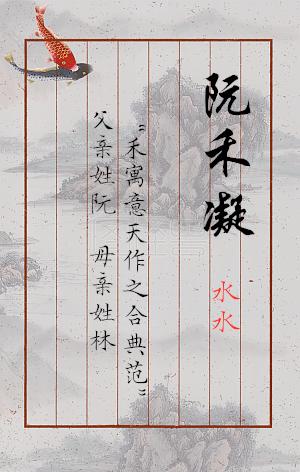 阮禾凝
水水
“禾寓意天作之合典范”
父亲姓阮 母亲姓林